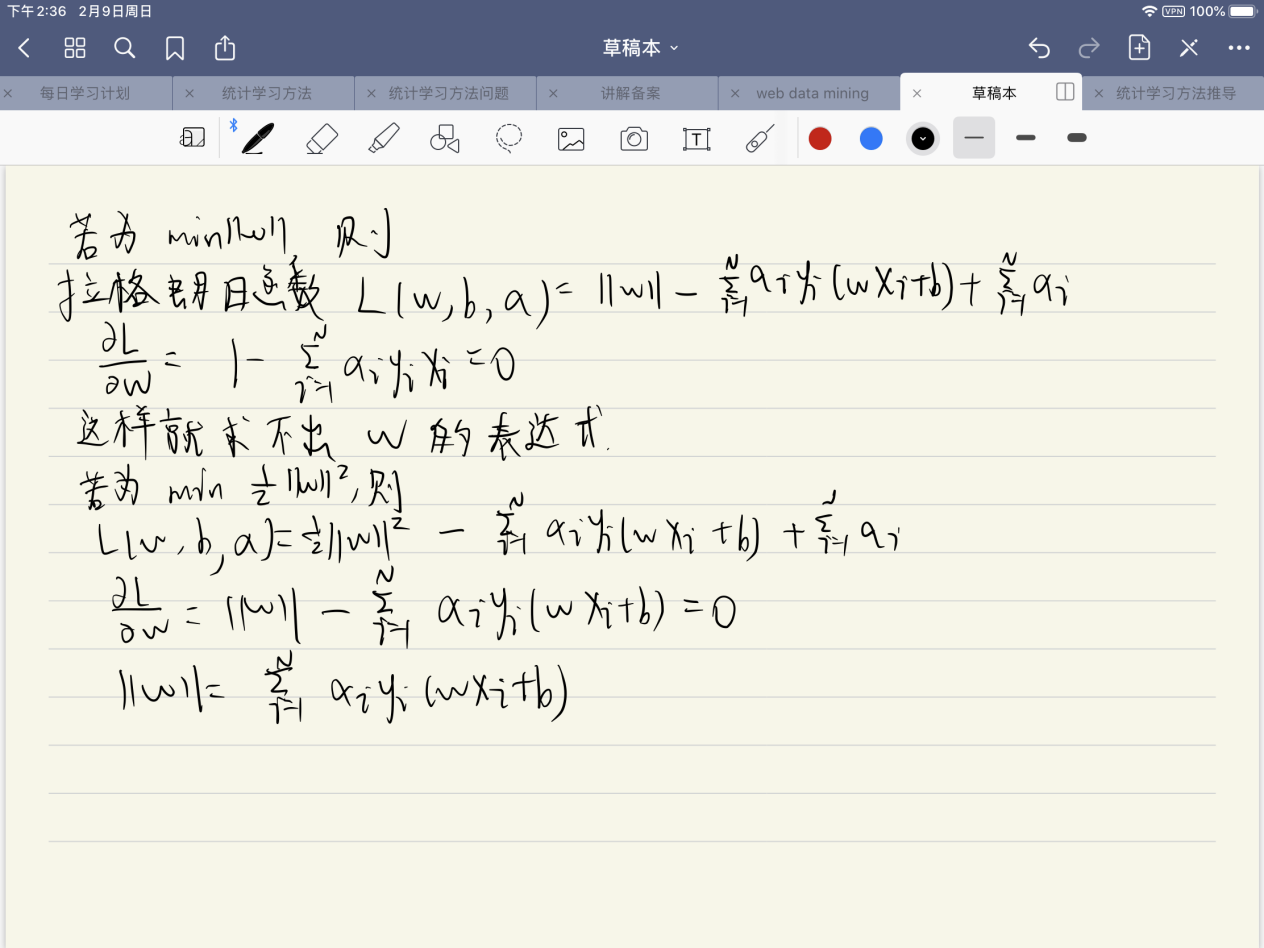 下午2:36 2月9日周日
VPN 100%
草稿本
每日学习计划 统计学习方法 统计学习方法问题 讲解备案 web data mining 草稿本 统计学习方法推导
若为 min||w|| 则
拉格朗日函数 L(w,b,a)= ||w|| - ∑_{i=1}^{N} a_i y_i (w x_i+b) + ∑_{i=1}^{N} a_i
∂L/∂w = 1 - ∑_{i=1}^{N} a_i y_i x_i = 0
这样就求不出 w 的表达式.
若为 min ½||w||², 则
L(w,b,a)=½||w||² - ∑_{i=1}^{N} a_i y_i (w x_i +b) + ∑_{i=1}^{N} a_i
∂L/∂w = ||w|| - ∑_{i=1}^{N} a_i y_i (w x_i+b) = 0
||w||= ∑_{i=1}^{N} a_i y_i (w x_i+b)